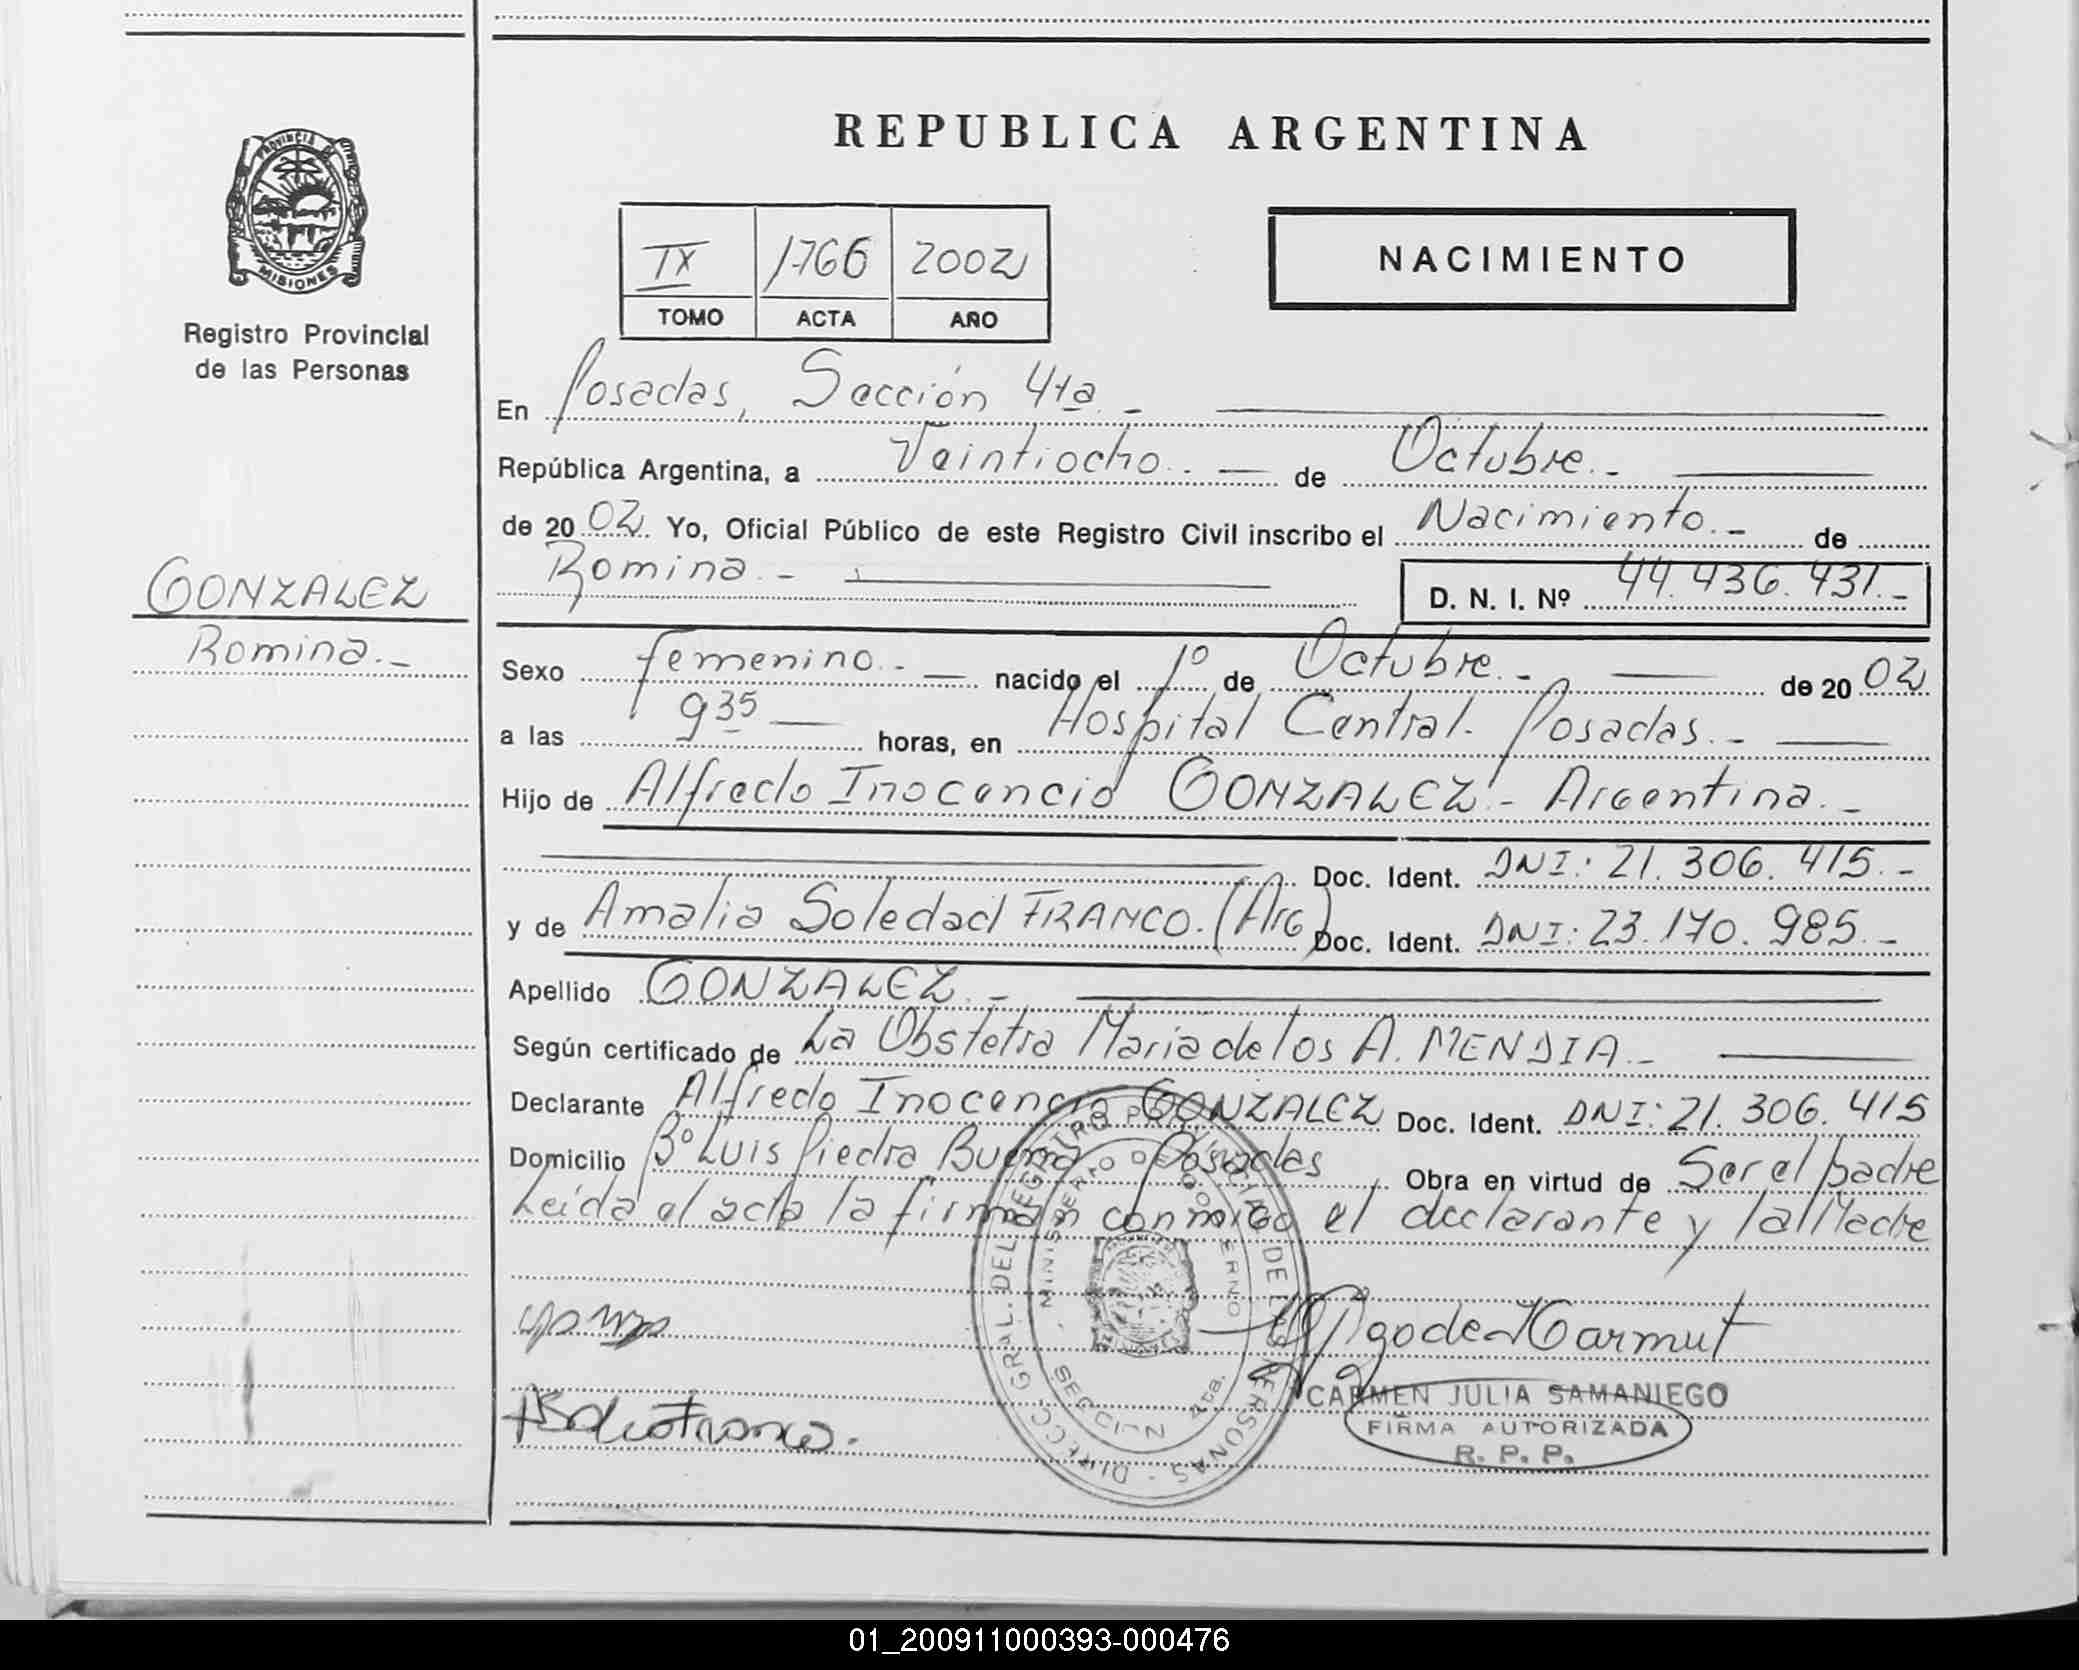 REPUBLICA ARGENTINA
PROVINCIA DE
MISIONES
Registro Provincial
de las Personas
IX 1766 2002
TOMO ACTA AÑO
NACIMIENTO
En Posadas, Sección 4ta.-
República Argentina, a Veintiocho.- de Octubre.-
de 2002. Yo, Oficial Público de este Registro Civil inscribo el Nacimiento.- de
Romina.- D. N. I. Nº 44.436.431.-
GONZALEZ
Romina.-
Sexo femenino.- nacido el 1º de Octubre.- de 2002
a las 9 35 horas, en Hospital Central. Posadas.-
Hijo de Alfredo Inocencio GONZALEZ.- Argentina.-
Doc. Ident. DNI: 21.306.415.-
y de Amalia Soledad FRANCO. (Arg) Doc. Ident. DNI: 23.170.985.-
Apellido GONZALEZ.-
Según certificado de La Obstetra Maria de los A. MENDIA.-
Declarante Alfredo Inocencio GONZALEZ Doc. Ident. DNI: 21.306.415
Domicilio Bº Luis Piedra Buena Posadas Obra en virtud de Ser el padre
Leida el acta la firman conmigo el declarante y la Madre
DIRECC. GRAL. DEL REGISTRO PROVINCIAL DE LAS PERSONAS -
MINISTERIO DE GOBIERNO
SECCION 4ta.
CARMEN JULIA SAMANIEGO
FIRMA AUTORIZADA
R. P. P.
01_200911000393-000476